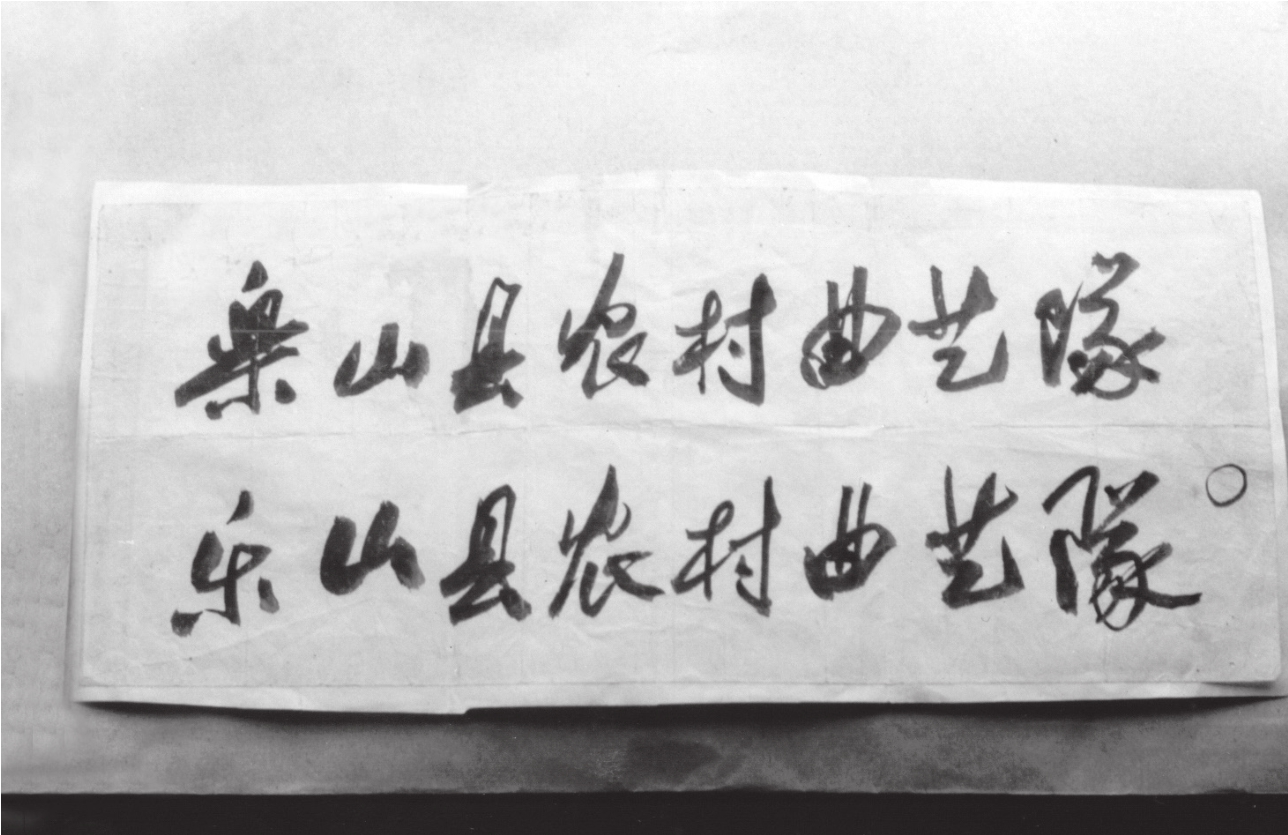 樂山县农村曲艺隊
乐山县农村曲艺隊